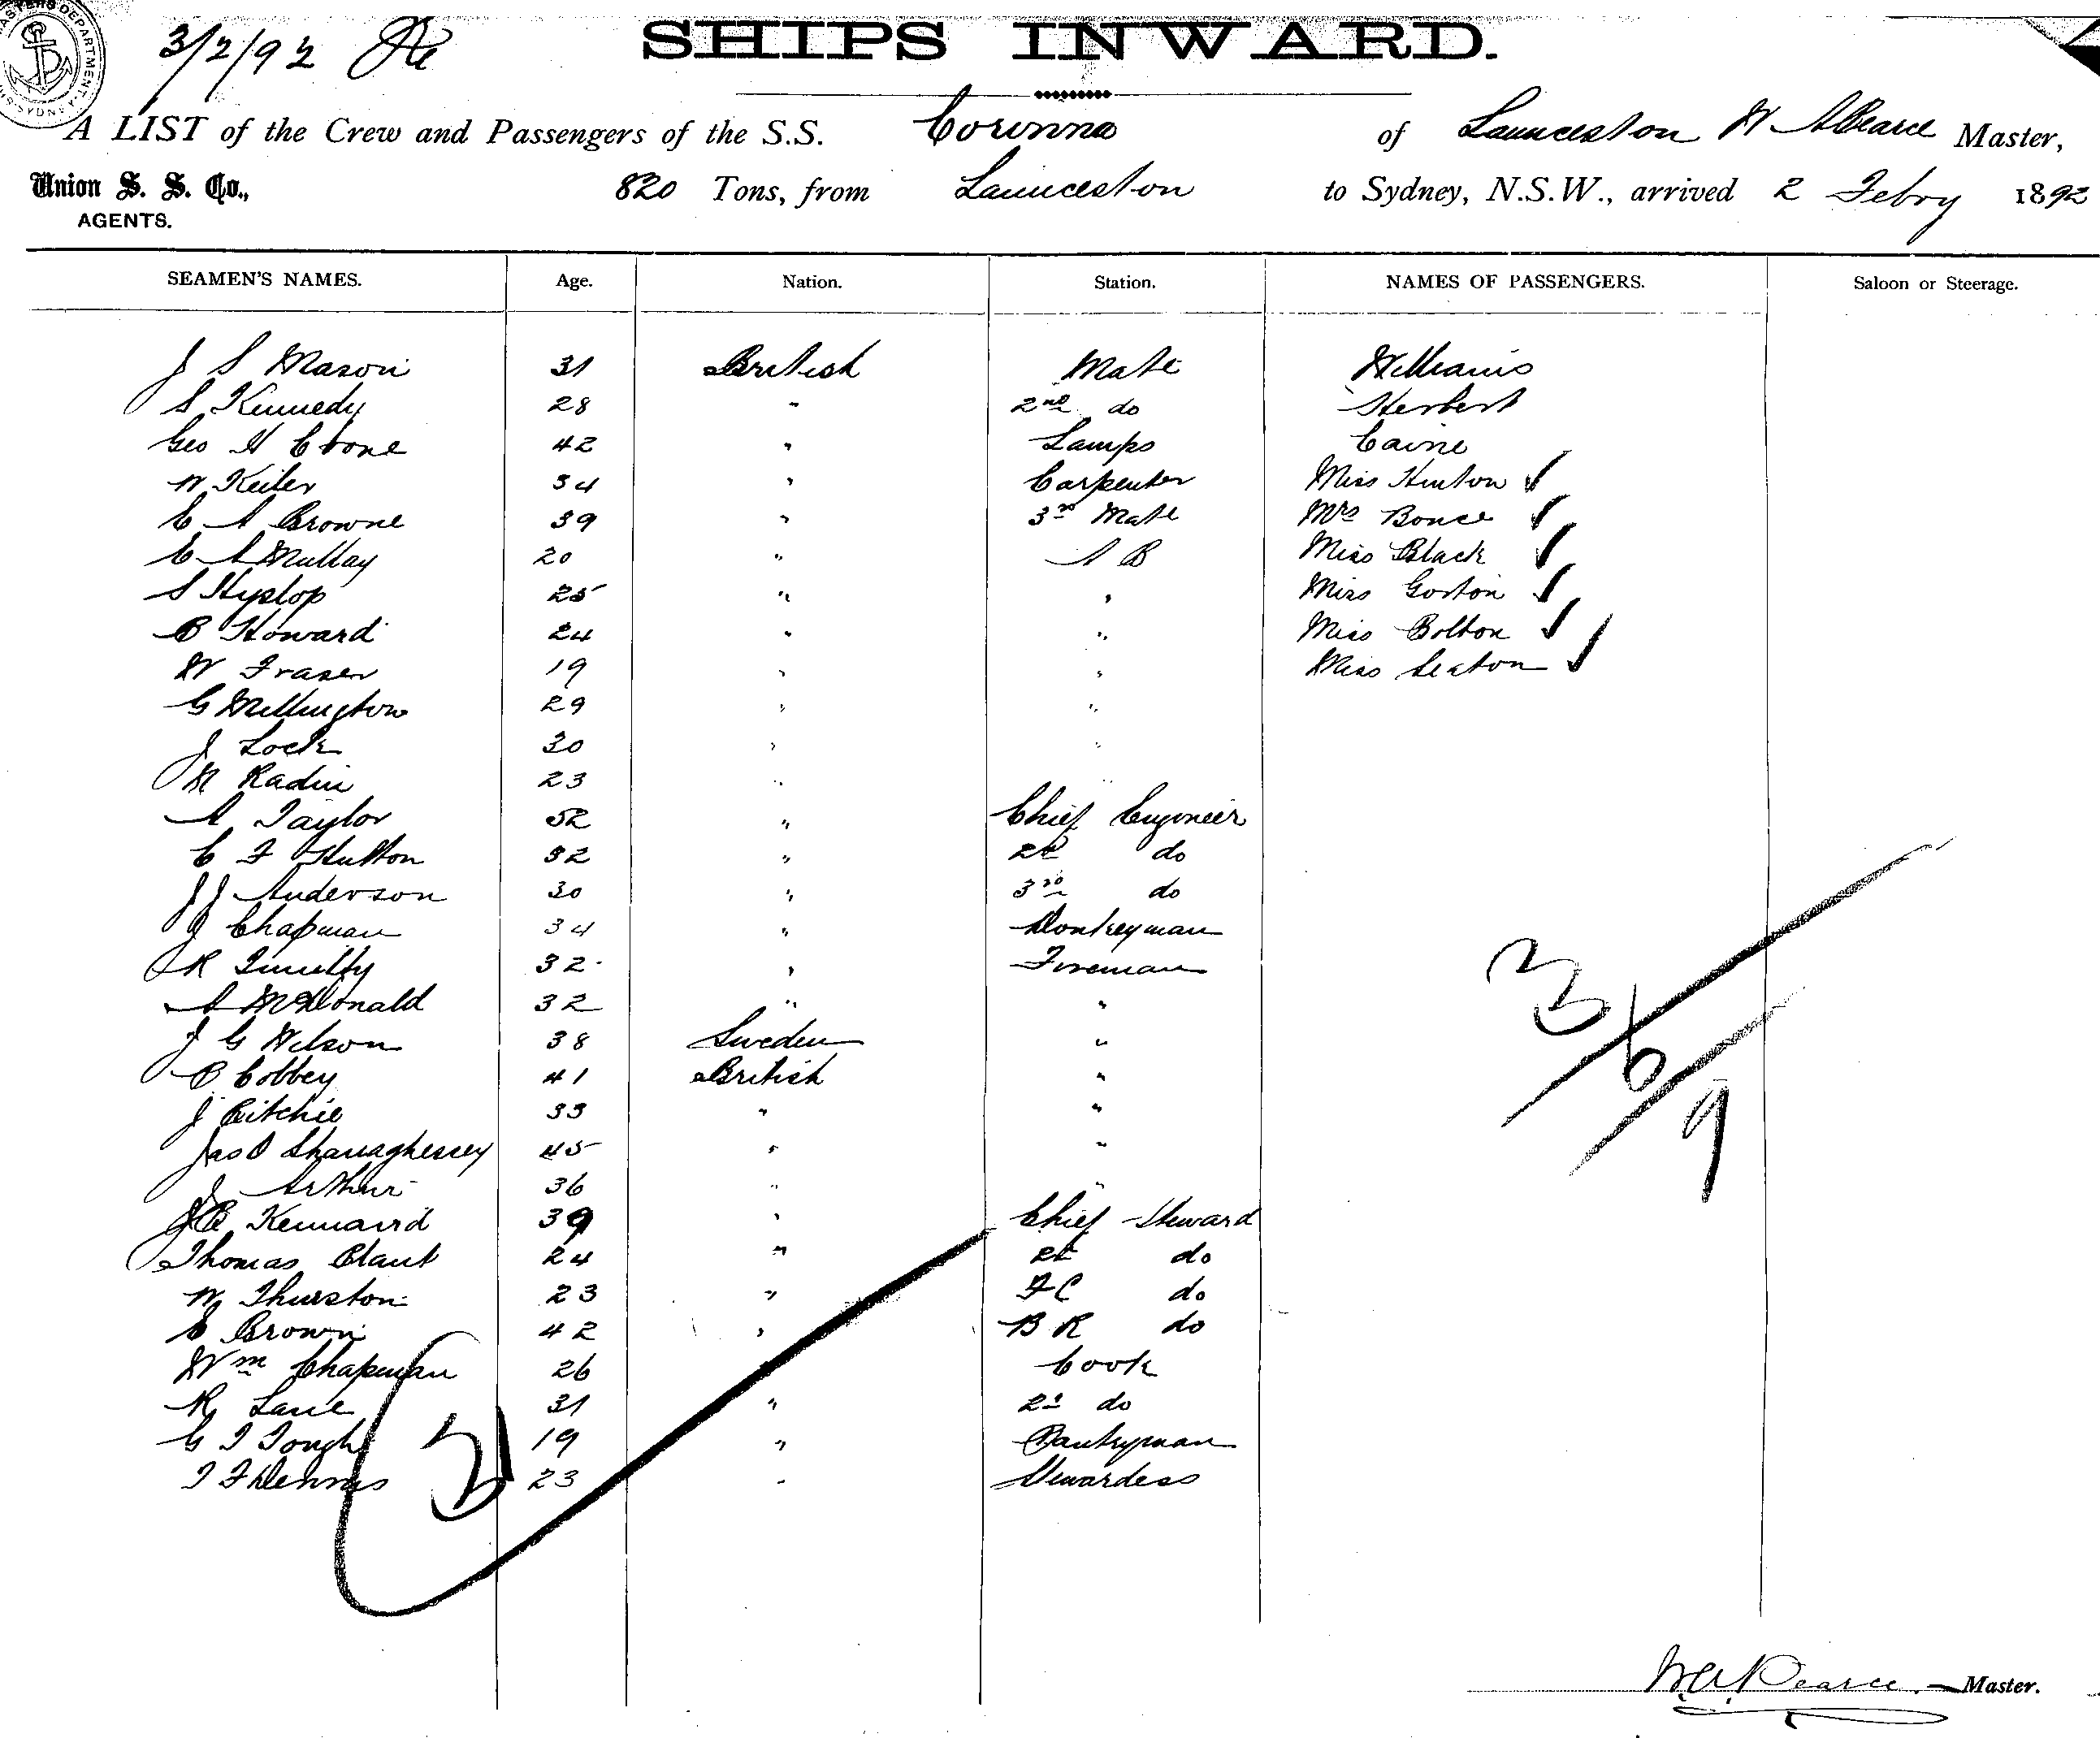 3/2/92
SHIPS INWARD.
A LIST of the Crew and Passengers of the S.S. Corinna of Launceston W A Pearce Master,
Union S. S. Co., 820 Tons, from Launceston to Sydney, N.S.W., arrived 2 Febry 1892
AGENTS.
SEAMEN'S NAMES. Age. Nation. Station. NAMES OF PASSENGERS. Saloon or Steerage.
J S Mason 31 British Mate Williams
S Kennedy 28 " 2nd do Herbert
Geo H Crone 42 " Lamps Caine
W Keiler 34 " Carpenter Miss Hinton ✓
E A Browne 39 " 3rd Mate Mrs Bonce ✓
E A Mullay 20 " A B Miss Black ✓
S Hyslop 25 " " Miss Gorton ✓
B Howard 24 " " Miss Bolton ✓
W Fraser 19 " " Miss Seaton ✓
G Millington 29 " "
J Lock 30 " "
M Radin 23 " "
A Taylor 52 " Chief Engineer
C F Hutton 32 " 2d do
J J Anderson 30 " 3rd do
J Chapman 34 " Donkeyman
R 32 " Fireman
A McDonald 32 " "
J G Nelson 38 Sweden "
P Cobbey 41 British "
J Ritchie 33 " "
Jas O Shanaghessey 45 " "
J Arthur 36 " "
J B Kennaird 39 " Chief Steward
Thomas Plant 24 " 2d do
W Thurston 23 " F C do
E Brown 42 " B R do
Wm Chapman 26 " Cook
R Lane 31 " 2d do
G T Tough 19 " Pantryman
T F Dennis 23 " Stewardess
31
3/6/9
W.A. Pearce Master.